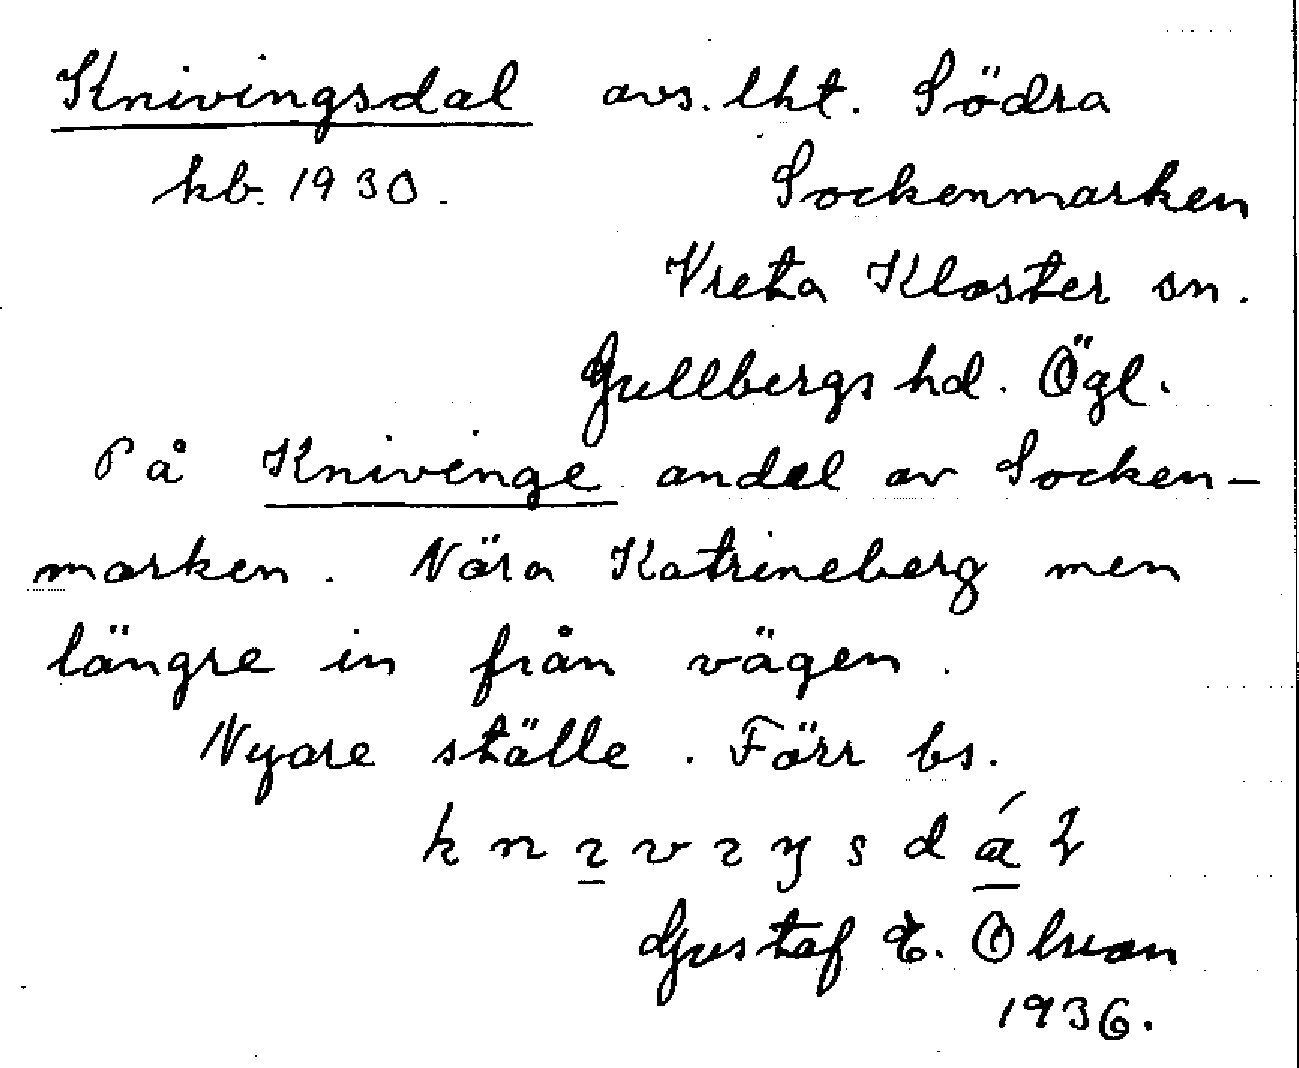 Knivingsdal avs. lht. Södra
kb. 1930. Sockenmarken
Vreta Kloster sn.
Gullbergs hd. Ögl.
På Knivinge andel av Socken-
marken. Nära Katrineberg men
längre in från vägen.
Nyare ställe. Förr bs.
Gustaf E. Olsson
1936.